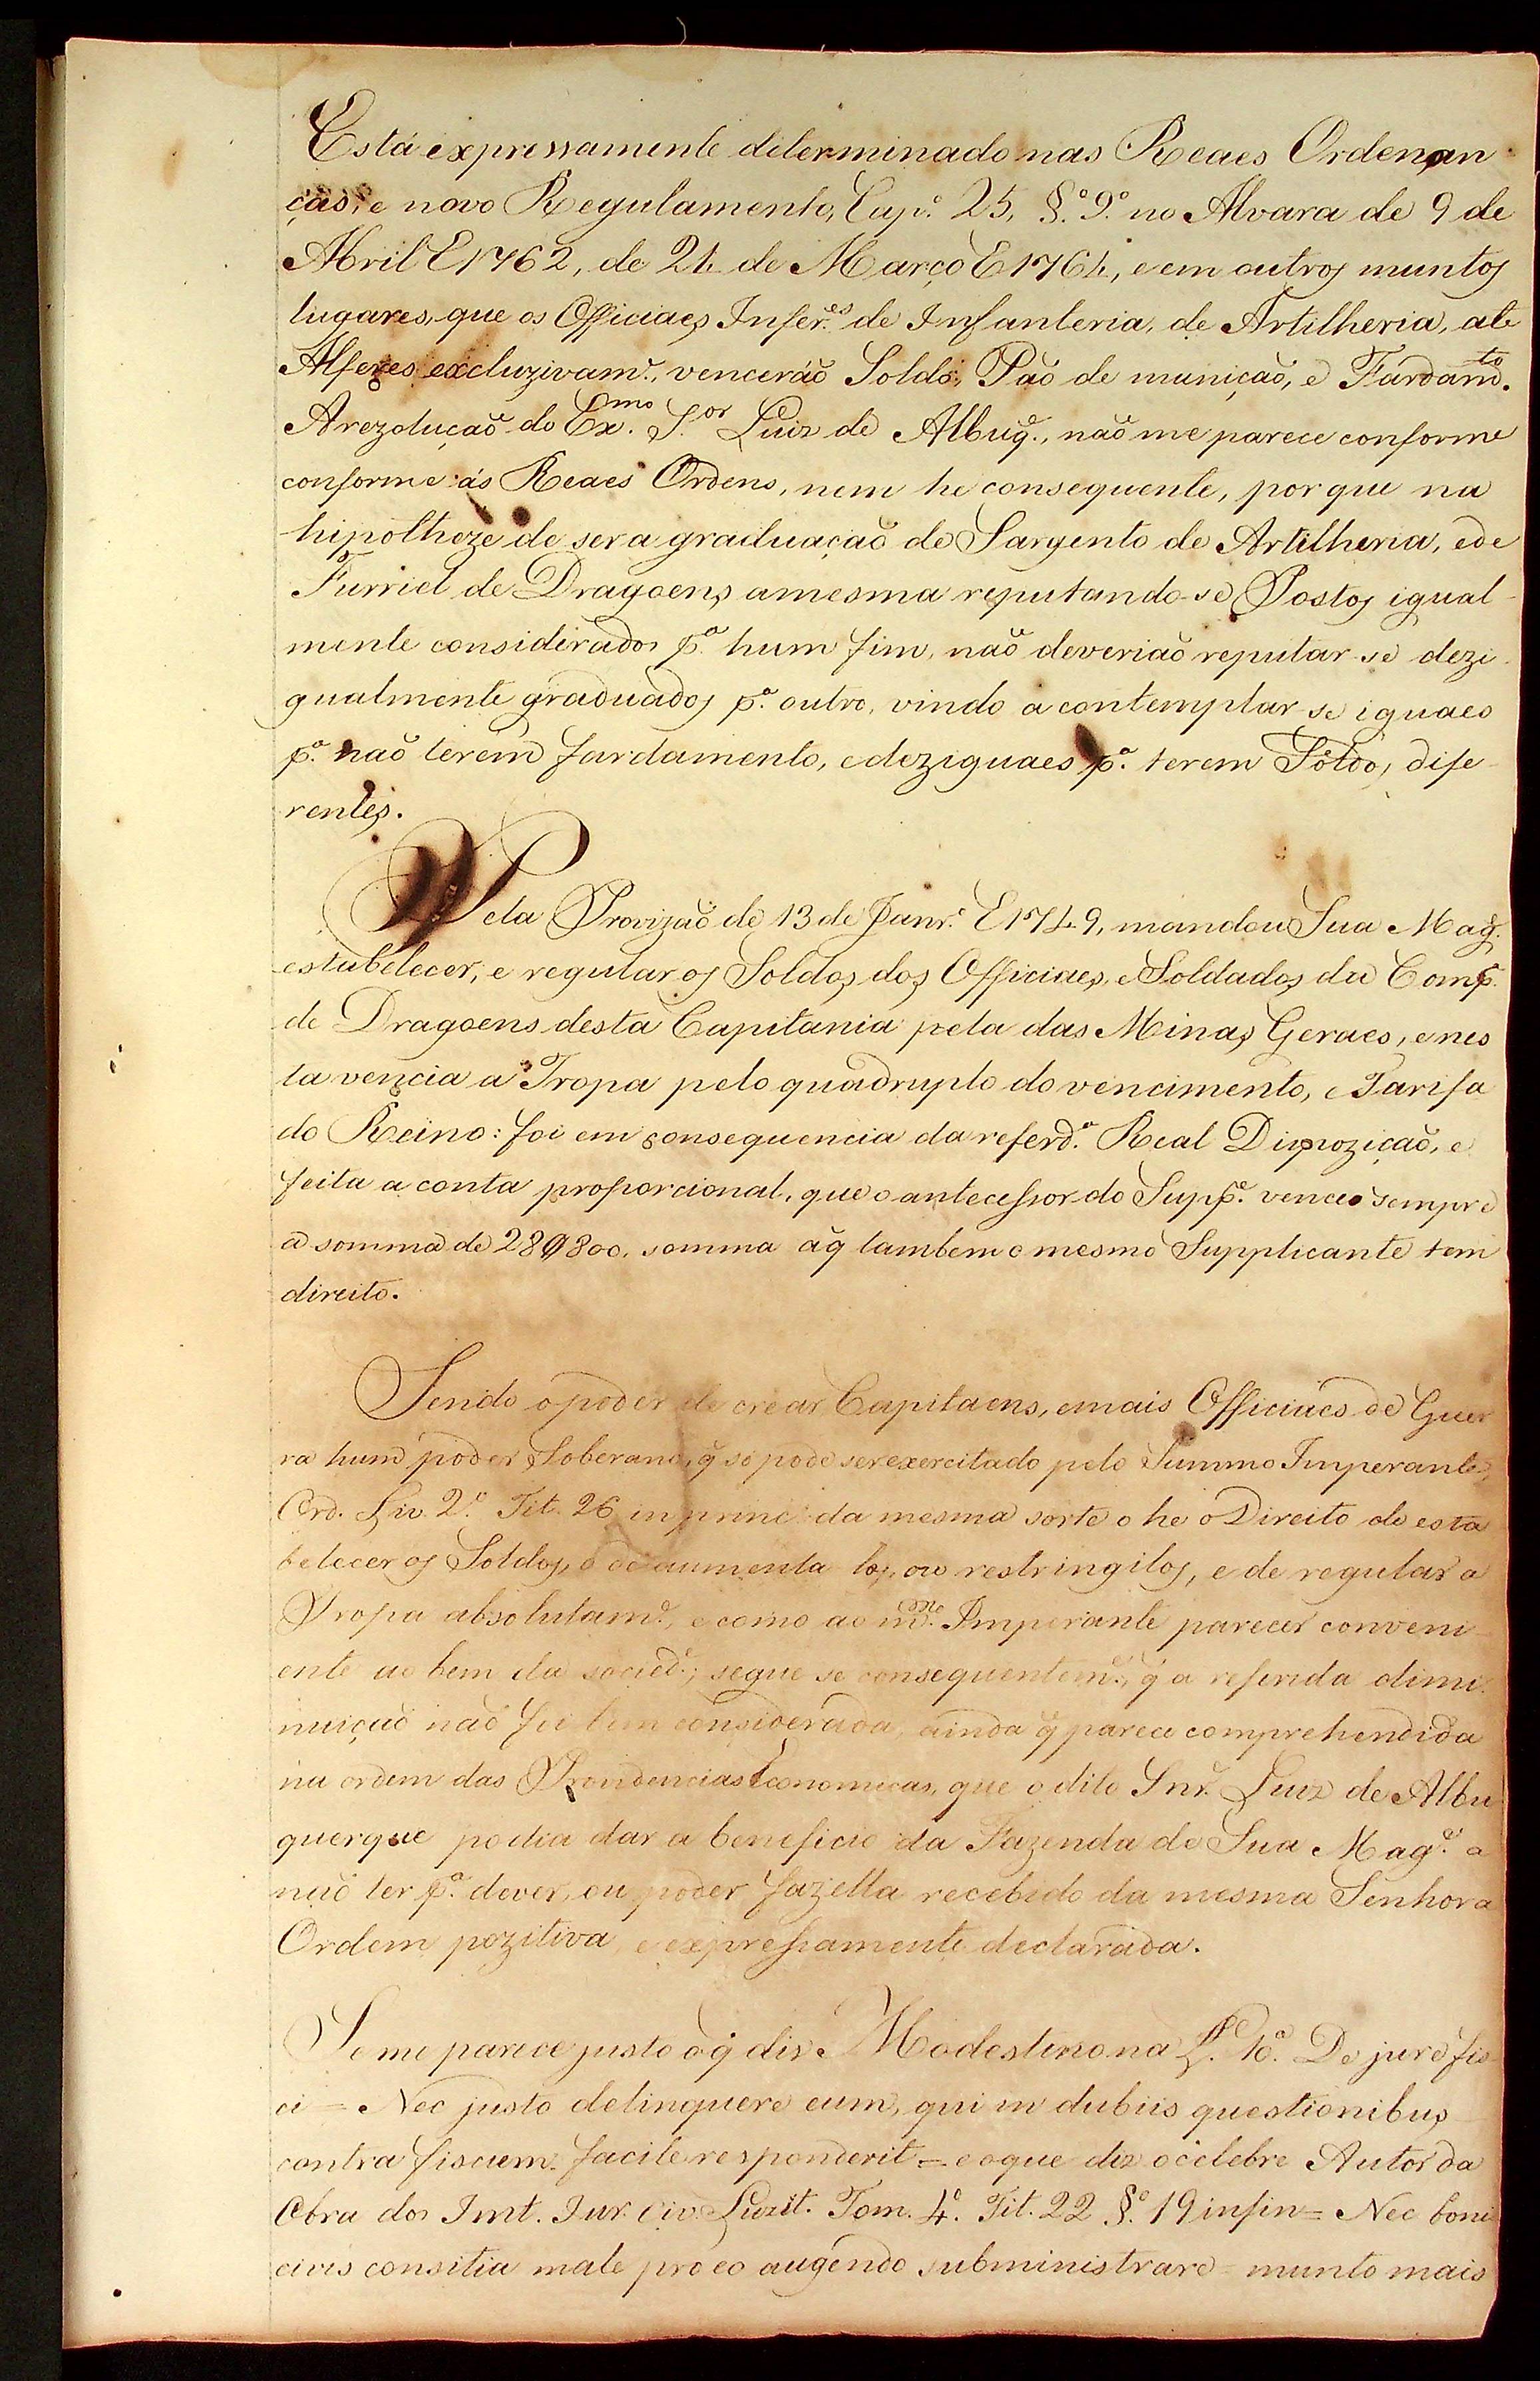 Está expressamente diterminado nas Reaes Ordenan
ças, e novo Regulamento, Cap.º 25, §.º 9.º no Alvara de 9 de
Abril E 1762, de 24 de Março E 1764, e em outros muntos
lugares, que os Officiaes Infer.es de Infanteria, de Artilheria, até
Alferes excluzivam.e, venceráõ Soldo, Paõ de muniçaõ, e Fardam.to.
A rezoluçaõ do Ex.mo S.or Luiz de Albuq.e, naõ me parece conforme
conforme ás Reaes Ordens, nem he consequente, por que na
hipotheze de ser a graduaçaõ de Sargento de Artilheria, e de
Furriel de Dragoens a mesma reputando-se Postos igual-
mente considirados p.a hum fim, naõ deveriaõ reputar-se dezi-
gualmente graduados p.a outro, vindo a contemplar-se iguaes
p.a naõ terem fardamento, e deziguaes p.a terem Soldos dife-
rentes.
Pela Provizaõ de 13 de Janr.o E 1749, mandou Sua Mag.e
estabelecer, e regular os Soldos dos Officiaes, e Soldados da Comp.a
de Dragoens desta Capitania pela das Minas Geraes, e nes
ta vencia a Tropa pelo quadruplo do vencimento, e Tarifa
do Reino: foi em consequencia da referd.a Real Dispoziçaõ, e
feita a conta proporcional, que o antecessor do Supp.e venceo sempre
a somma de 28$800, somma a q̃ tambem o mesmo Supplicante tem
direito.
Sendo o poder de crear Capitaens, e mais Officiaes de Guer
ra hum poder Soberano, q̃ só pode ser exercitado pelo Summo Imperante,
Ord. Liv. 2.º Tit. 26 in princ. da mesma sorte o he o Direito de esta
belecer os Soldos, o de aumenta-los, ou restringilos, e de regular a
Tropa absolutam.e, e como ao m.mo Imperante parecer conveni-
ente ao bem da socied.e; segue-se consequentem.e, q̃ a referida dimi-
nuiçaõ naõ foi bem considerada, ainda q̃ parece comprehendida
na ordem das Providencias Economicas, que o dito Snr. Luiz de Albu
querque podia dar a beneficio da Fazenda de Sua Mag.e a
naõ ter p.a dever, ou poder fazella recebido da mesma Senhora
Ordem pozitiva, e expressamente declarada.
Se me parece justo o q̃ diz Modestino na L. 10.a De jure fis-
ci = Nec justo delinquere eum, qui in dubiis questionibus
contra fiscum facile responderit = e o que diz o celebre Autor da
Obra dos Inst. Jur. Civ. Luzit. Tom. 4.º Tit. 22 §.º 19 in fin = Nec boni
civis consilia male pro eo augendo subministrare = munto mais